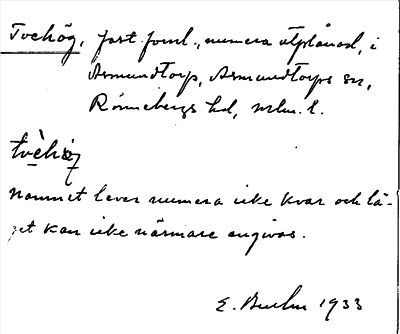 Tvehög, fast forml., numera utplånad, i
Asmundtorp, Asmundtorps sn,
Rönnebergs hd, Mlm. l.
tvèhöj
Namnet lever numera icke kvar och lä-
get kan icke närmare angivas.
E. 1933